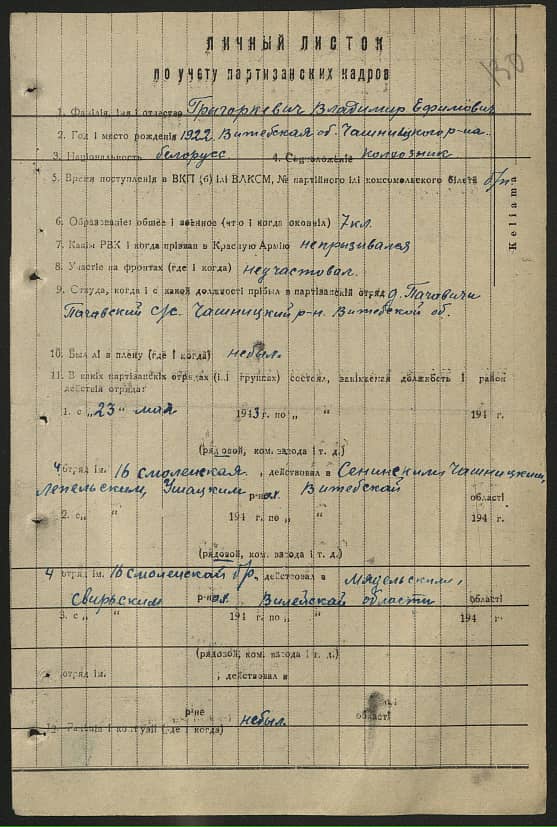 130
ЛИЧНЫЙ ЛИСТОК
по учету партизанских кадров
1. Фаміліа, імя і отчество Григоркевич Владимир Ефимович
2. Год і место рождения 1922 Витебская об. Чашницкого р-на.
3. Національность белорусс 4. Соцположеніе Колхозник
5. Время поступления в ВКП (б) ілі ВЛКСМ, № партійного ілі комсомольского білета б/п.
6. Образованіе: общее і военное (что і когда окончіл) 7 кл.
7. Какім РВК і когда прізван в Красную Армію непризывался
8. Участіе на фронтах (где і когда) неучаствовал.
9. Откуда, когда і с какой должності прібыл в партізанскій отряд д. Пачавичи
Пачавский с/с. Чашницкий р-н. Витебской об.
10. Был лі в плену (где і когда) небыл.
11. В какіх партізанскіх отрядах (ілі группах) состоял, занімаемая должность і район
действій отряда:
1. с „23" мая 1943 г. по „ " 194 г.
(рядовой, ком. взвода і т. д.)
4 отряд ім. 16 смоленская, действовал в Сенинским, Чашницким,
Лепельским, Ушацким р-нах Витебской області
2. с „ " 194 г. по „ " 194 г.
(рядовой, ком. взвода і т. д.)
4 отряд ім. 16 смоленской б/р., действовал в Мядельским,
Свирьским р-нах Вилейской области області
3. с „ " 194 г. по „ " 194 г.
(рядовой, ком. взвода і т. д.)
отряд ім. ; действовал в
р-не області
12. Раненія і контузіі (где і когда) небыл.
Keliama